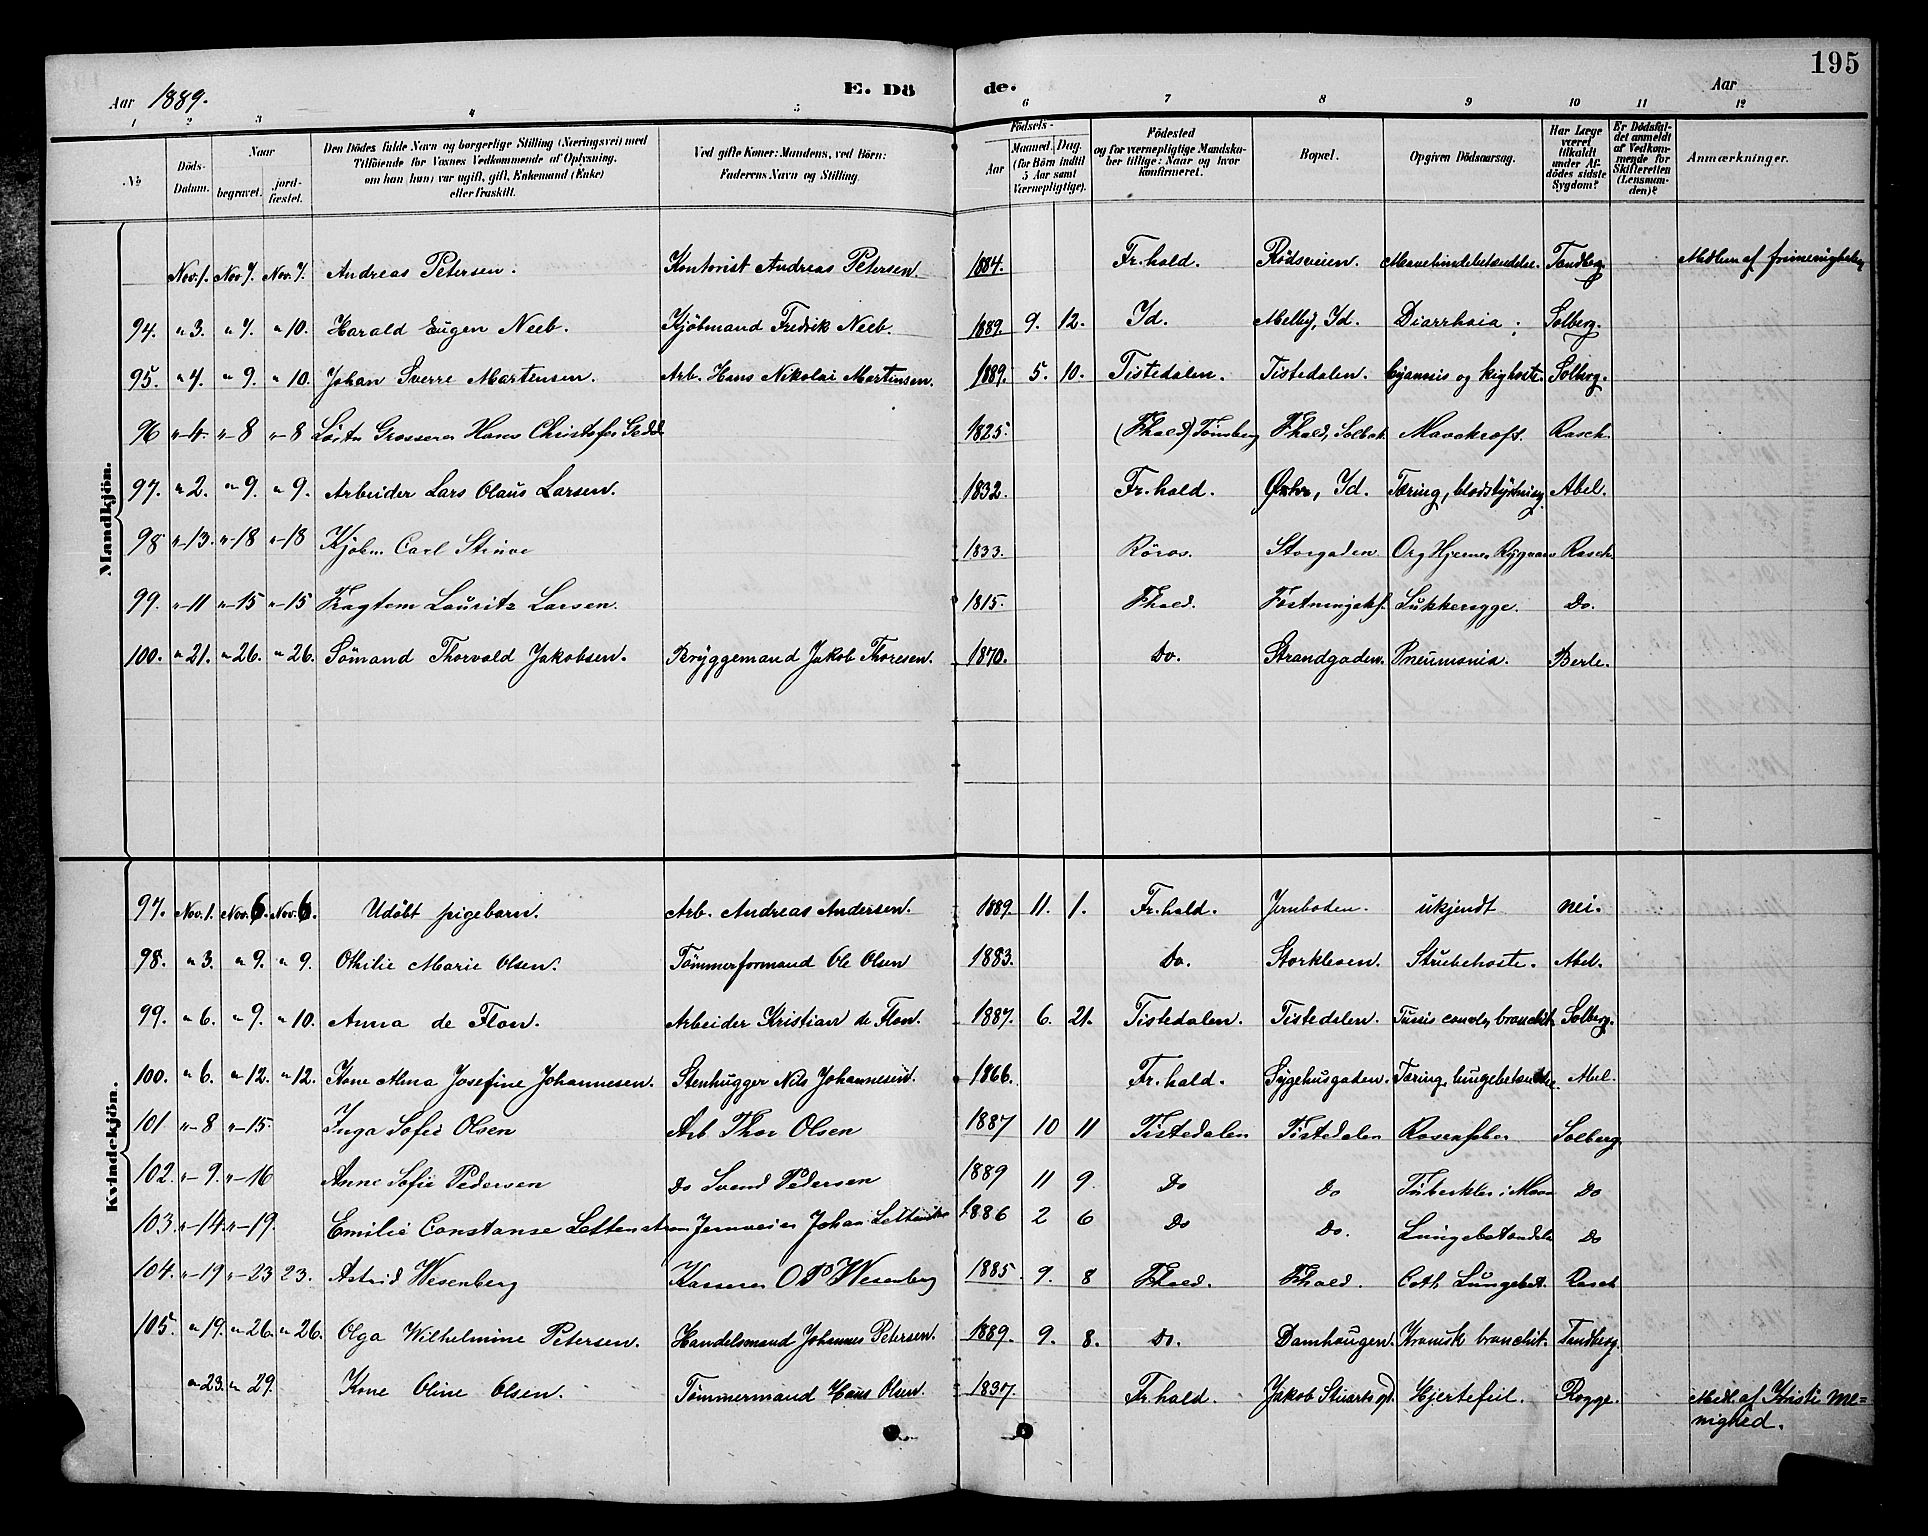 195
Aar 1889. E. Dö de. Aar
1 2 3 4 5 6 7 8 9 10 11 12
No
Döds-Datum.
Naar
begravet.
jord-fæstet.
Den Dödes fulde Navn og borgerlige Stilling (Næringsvei) med
Tilföiende for Voxnes Vedkommende af Oplysning,
om han (hun) var ugift, gift, Enkemand (Enke)
eller fraskilt.
Ved gifte Koner: Mandens, ved Börn:
Faderens Navn og Stilling.
Födsels-
Aar
Maaned. Dag.
(for Börn indtil
5 Aar samt
Værnepligtige).
Födested
og for værnepligtige Mandska-
ber tillige: Naar og hvor
konfirmeret.
Bopæl.
Opgiven Dödsaarsag.
Har Læge
været
tilkaldt
under Af-
dödes sidste
Sygdom?
Er Dödsfal-
det anmeldt
af Vedkom-
mende for
Skifteretten
(Lensman-
den)?
Anmærkninger.
Mandkjön.
Nov. 1. Nov. 7. Nov. 7. Andreas Petersen. Kontorist Andreas Petersen. 1884. Fr.hald. Rödsveien. Tandberg. Medlem af frimenigheden
94. " 3. " 7. " 10. Harald Eugen Neeb. Kjöbmand Fredrik Neeb. 1889. 9. 12. Id. Melby, Id. Diarrhoia. Solberg.
95. " 4. " 9. " 10. Johan Sverre Martensen. Arb. Hans Nikolai Martinsen. 1889. 5. 10. Tistedalen. Tistedalen. og kighoste. Solberg.
96 " 4. " 8 " 8 Grosserer Hans Christofer 1825. (Fhald) Tönsberg Fhald, Solbak. Mavekræft. Rasch.
97. " 2. " 9. " 9. Arbeider Lars Olaus Larsen. 1832. Fr.hald. Id. Tæring, blodstyrtning. Abel.
98 " 13. " 18 " 18 Kjöbm. Carl Struve 1833. Röros. Storgaden Org Hjerne Rasch
99. " 11 " 15 " 15 Lauritz Larsen. 1815. Fhald. Do.
100. " 21. " 26. " 26. Sömand Thorvald Jakobsen. Bryggemand Jakob Thoresen. 1870. Do. Strandgaden. Pneumonia. Berle.
Kvindekjön.
97. Nov. 1. Nov. 6. Nov. 6. Udöbt pigebarn. Arb. Andreas Andersen. 1889. 11. 1. Fr.hald. Jernboden. ukjendt nei.
98. " 3. " 9. " 9. Othilie Marie Olsen. Tömmerformand Ole Olsen 1883. Do. Storkleven. Strubehoste. Abel.
99. " 6. " 9. " 10. Anna de Flon. Arbeider Kristian de Flon. 1887. 6. 21. Tistedalen. Tistedalen. Tussis convuls, bronchit. Solberg.
100. " 6. " 12. " 12. Kone Alma Josefine Johannesen. Stenhugger Nils Johannesen. 1866. Fr.hald. Sygehusgaden. Tæring, Abel.
101 " 8 " 15. Inga Sofie Olsen Arb Thor Olsen 1887 10 11 Tistedalen Tistedalen Rosenfeber Solberg
102. " 9. " 16 Anne Sofie Pedersen Do Svend Pedersen 1889 11 9. Do Do Tuberkler i Do
103. " 14. " 19. Emilie Constanse Johan 1886 2 6 Do Do. Do
104. " 19 " 23 23. Astrid Wesenberg Kasserer O P Wesenberg 1885 9. 8 Fhald. Fhald. Cath. Lungebet. Rasch
105. " 19. " 26. " 26. Olga Wilhelmine Petersen. Handelsmand Johannes Petersen. 1889. 9. 8. Do. Damhaugen. Kronisk bronchit. Tandberg.
" 23. " 29. Kone Oline Olsen. Tömmermand Hans Olsen. 1837. Fr.hald. Jakob Stuarts gt. Hjertefeil. Rogge. Medl. af Kristi me-
nighed.